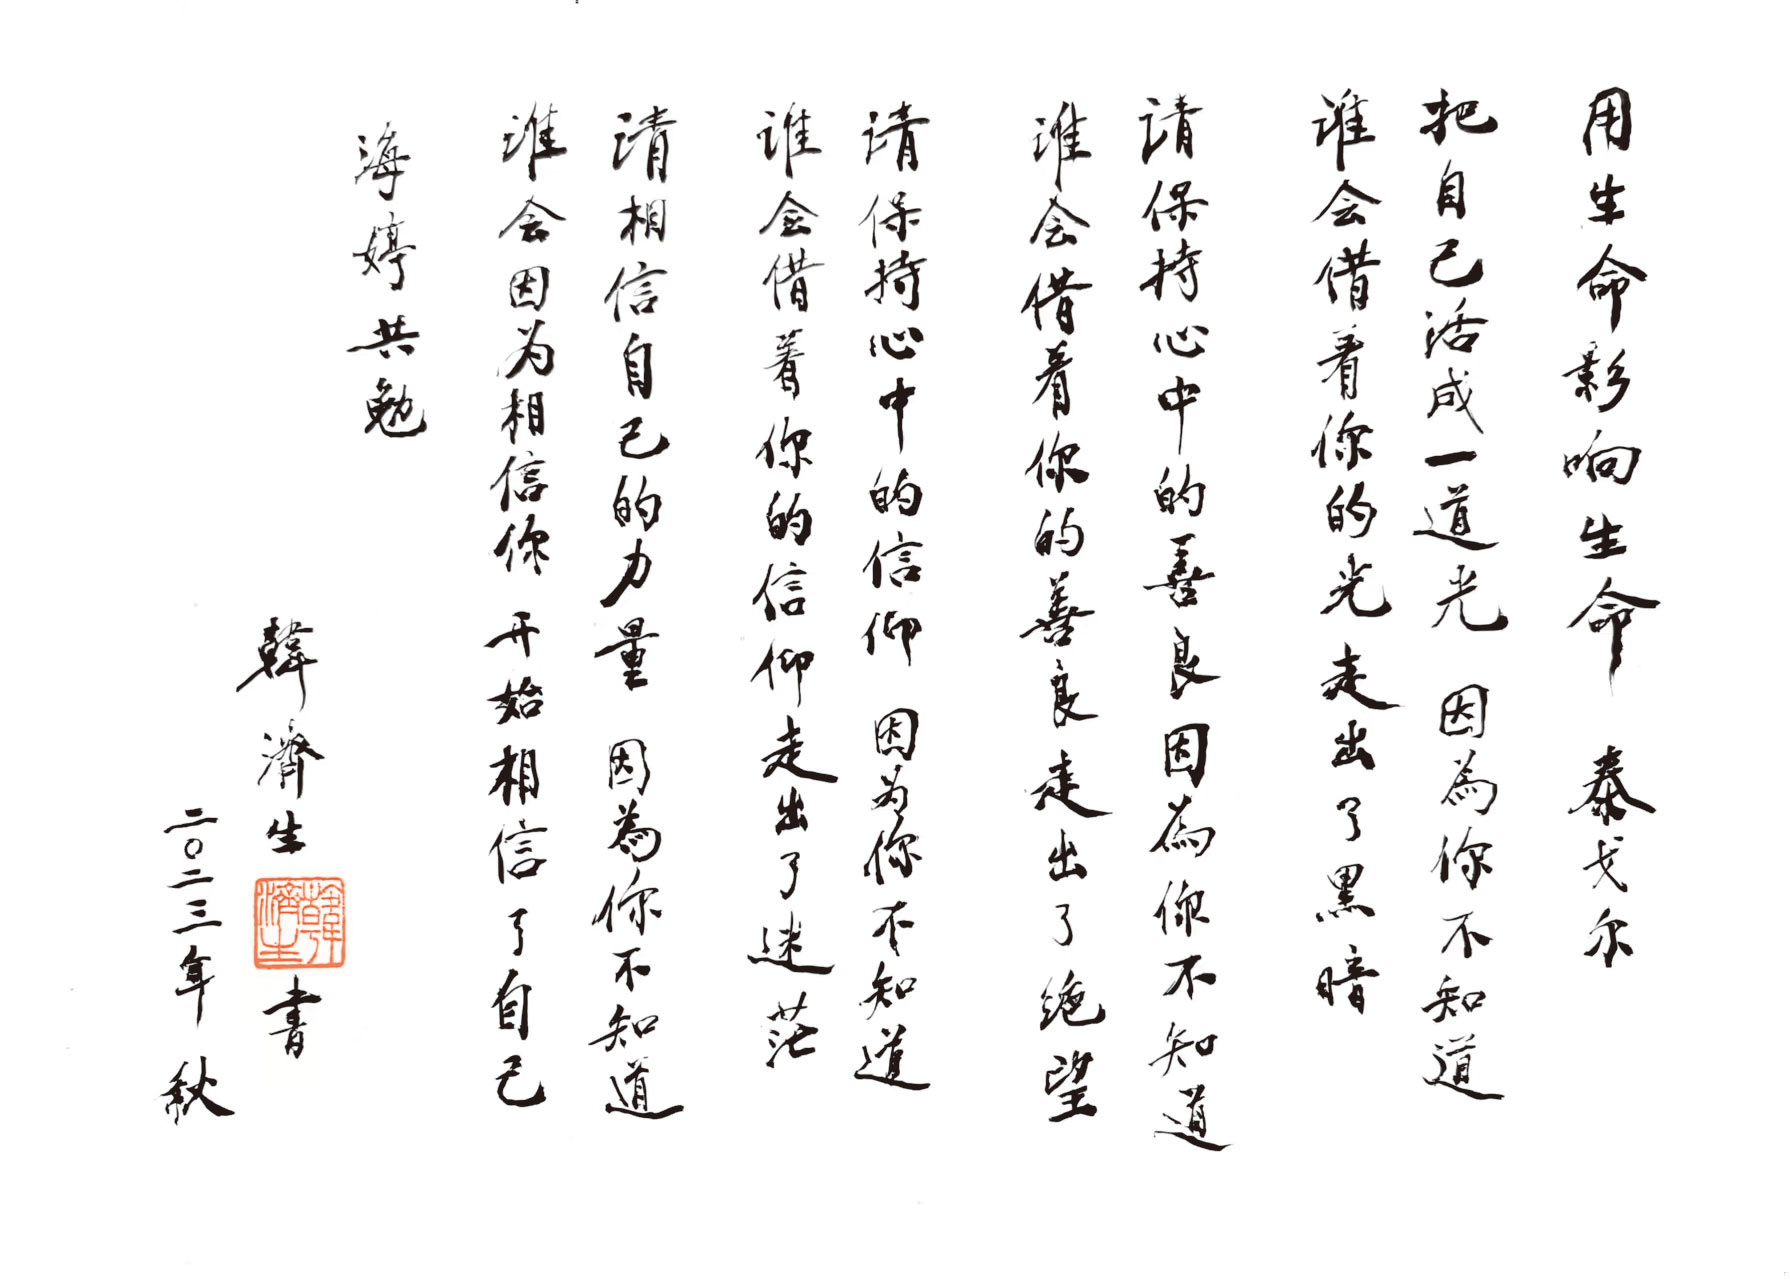 用生命影响生命 泰戈尔
把自己活成一道光 因為你不知道
谁会借着你的光走出了黑暗
请保持心中的善良因為你不知道
谁会借着你的善良走出了绝望
请保持心中的信仰 因为你不知道
谁会借着你的信仰走出了迷茫
请相信自己的力量 因為你不知道
谁会因为相信你 开始相信了自己
海婷共勉
韓濟生
韓濟生
書
二〇二三年秋